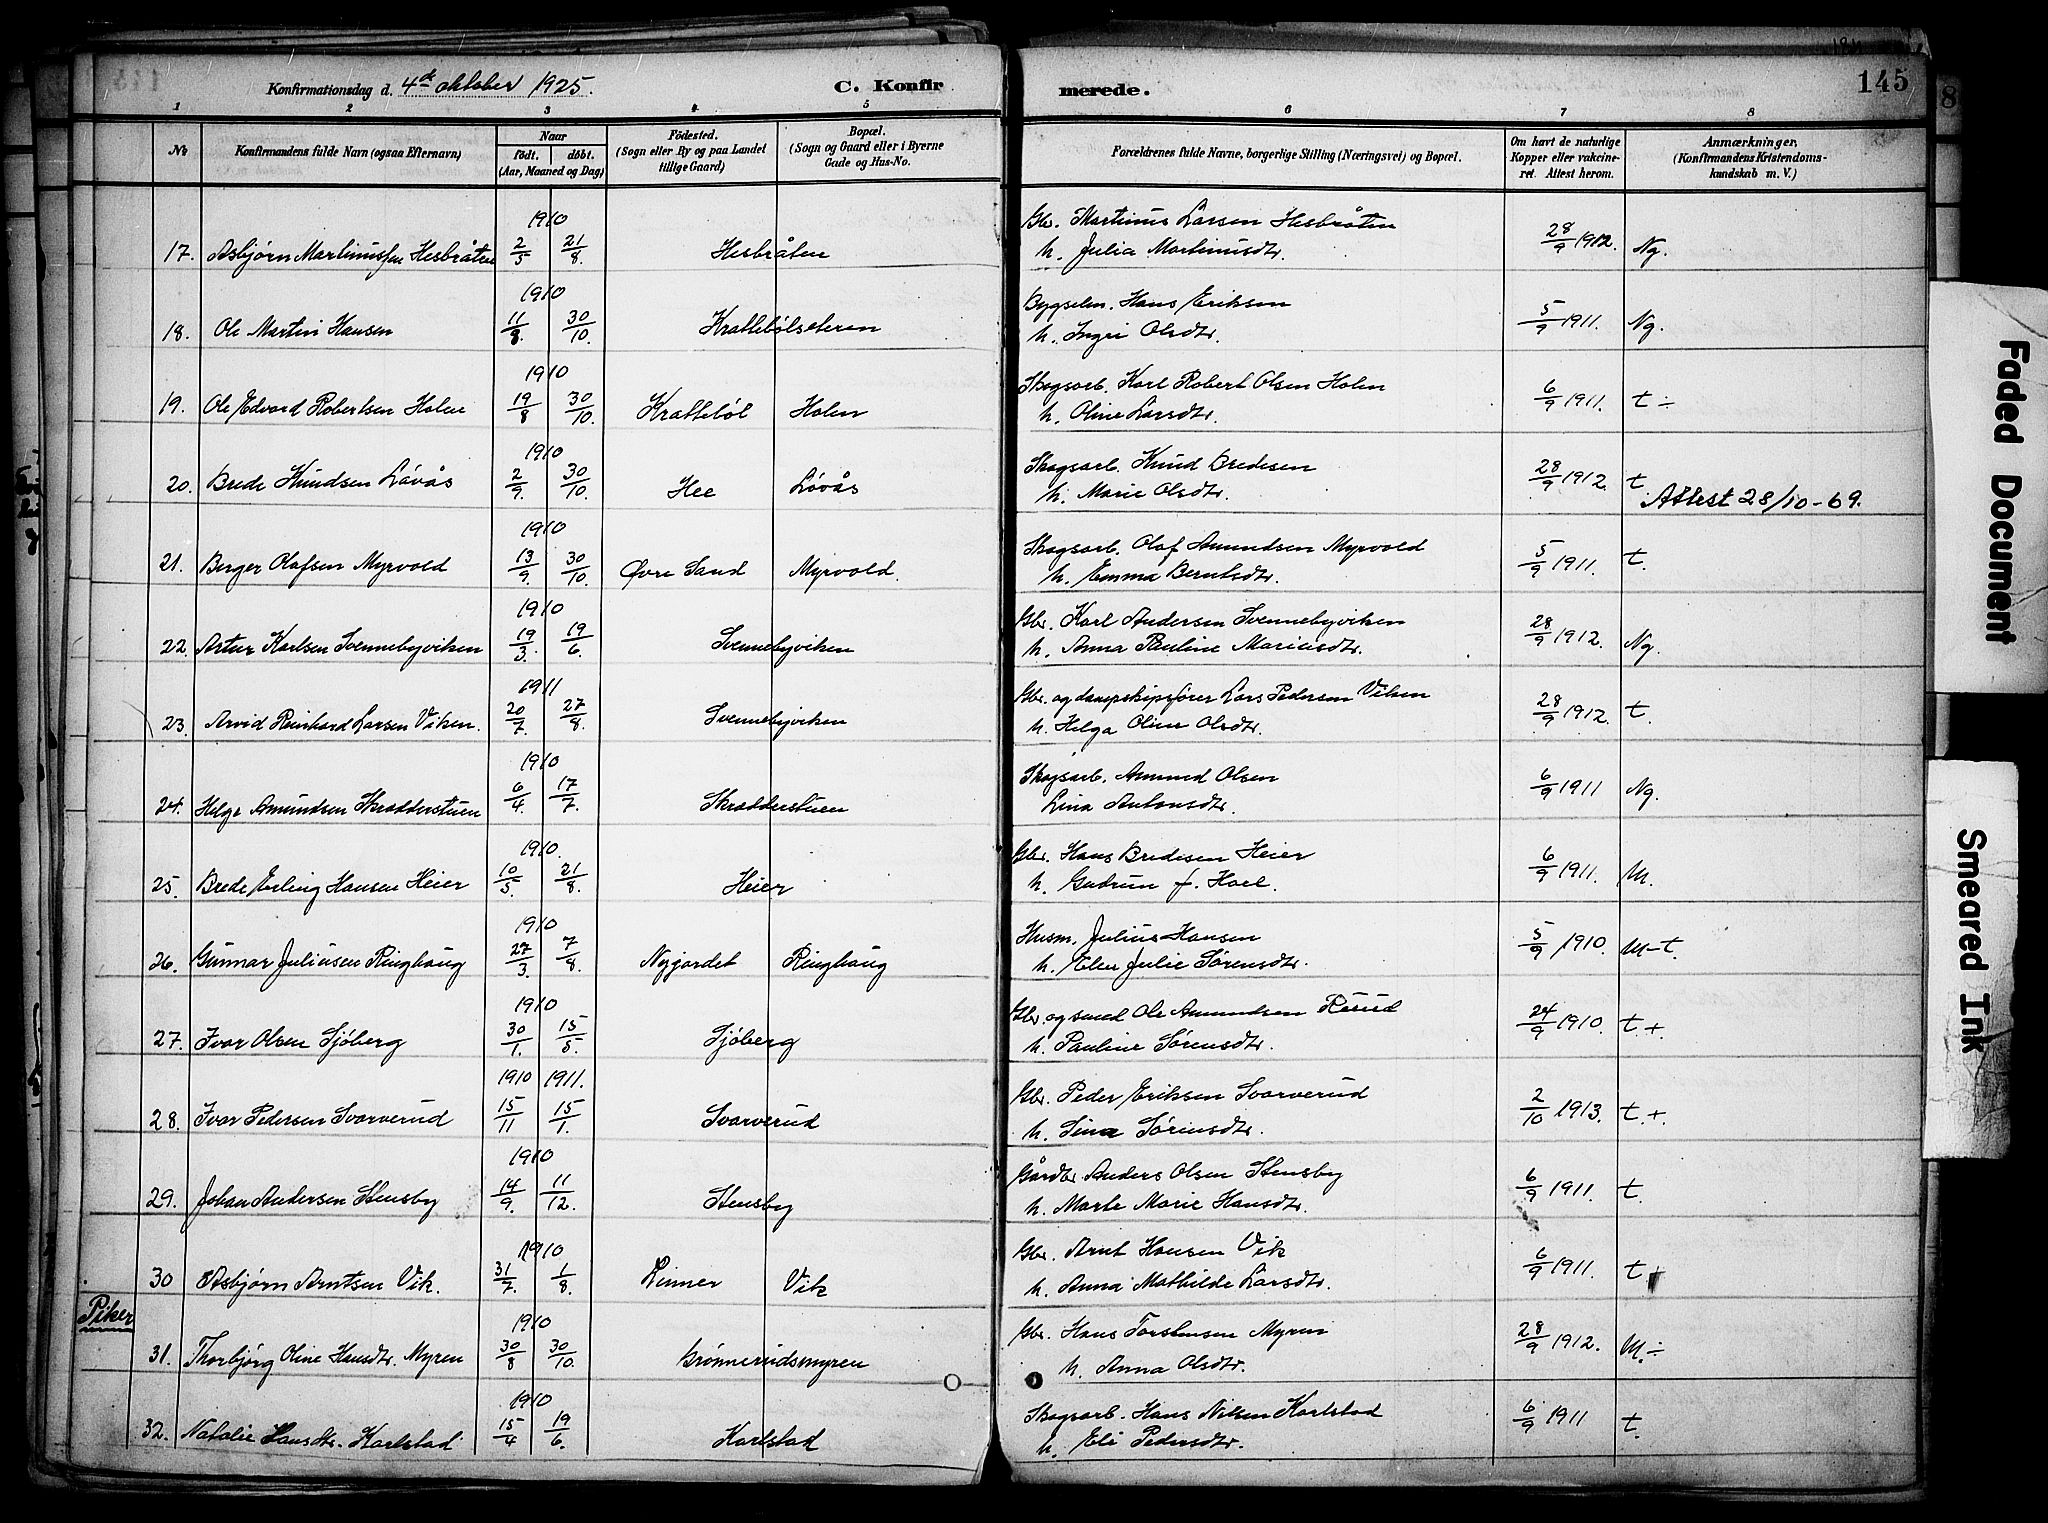 Konfirmationsdag d. 4de oktober 1925. C. Konfirmerede. 145
1 2 3 4 5 6 7 8
No
Konfirmandens fulde Navn (ogsaa Efternavn)
Naar
födt. döbt.
(Aar, Maaned og Dag)
Födested.
(Sogn eller By og paa Landet tillige Gaard)
Bopæl.
(Sogn og Gaard eller i Byerne Gade og Hus-No.
Forældrenes fulde Navne, borgerlige Stilling (Næringsvei) og Bopæl.
Om havt de naturlige Kopper eller vakcineret. Attest herom.
Anmærkninger.
(Konfirmandens Kristendomskundskab m. V.)
1910
17. Asbjørn Martinussen Hesbråten 2/5 21/8. Hesbråten Gbr. Martinus Larsen Hesbråten 28/9 1912. Ng.
h. Julia Martinusdtr.
1910
18. Ole Martin Hansen 11/8. 30/10. Krattebölseteren Bygselm. Hans Eriksen 5/9 1911. Ng.
h. Ingri Olsdtr.
1910
19. Ole Edvard Robertsen Holen 19/8 30/10. Krattebøl Holen Skogsarb. Karl Robert Olsen Holen 6/9 1911. t ÷
h. Oline Larsdtr.
1910
20. Brede Knudsen Lövås 2/9. 30/10. Hee Lövås Skogsarb. Knud Bredesen 28/9 1912. t.
h. Marie Olsdtr. Attest 28/10-69.
1910
21. Berger Olafsen Myrvold 13/9. 30/10. Øvre Sand Myrvold. Skogsarb. Olaf Amundsen Myrvold 5/9 1911. t.
h. Emma Berntsdtr.
1910
22. Artur Karlsen Svennebyviken 19/3. 19/6. Svennebyviken Gbr. Karl Andersen Svennebyviken 28/9 1912. Ng.
h. Anna Pauline Mariusdtr.
1911
23. Arvid Reinhard Larsen Viken. 20/7. 27/8. Svennebyviken Gbr. og dampskipsfører Lars Pedersen Viken 28/9 1912. t.
h. Helga Oline Olsdtr.
1910
24. Helge Amundsen Skradderstuen 6/4. 17/7. Skradderstuen Skogsarb. Ammund Olsen 6/9 1911 Ng.
Lina Antonsdtr.
1910.
25. Brede Erling Hansen Heier 10/5. 21/8. Heier Gbr. Hans Bredesen Heier 6/9 1911. M.
h. Gudrun f. Hoel.
1910
26. Gunnar Juliusen Ringhaug 27/3. 7/8. Nyjordet Ringhaug Husm. Julius Hansen 5/9 1910. M-t.
h. Elen Julie Sørensdtr.
1910
27. Ivar Olsen Sjöberg 30/1. 15/5. Sjöberg Gbr. og smed Ole Ammundsen Rosud 24/9 1910. t +
h. Pauline Sörensdtr.
1910 1911.
28. Ivar Pedersen Svarverud 15/11 15/1. Svarverud Gbr. Peder Eriksen Svarverud 2/10 1913. t. +.
h. Lina Sörensdtr.
1910
29. Johan Andersen Stensby 14/9. 11/12. Stensby Gårdbr. Anders Olsen Stensby 6/9 1911. t.
h. Marte Marie Hansdtr.
1910
30 Asbjørn Arntsen Vik. 31/7. 1/8. Rinner Vik Gbr. Arnt Hansen Vik 6/9 1911. t +
h. Anna Mathilde Larsdtr.
Piker
1910
31. Thorbjørg Oline Hansdtr. Myren 30/8 30/10. Brönnerudsmyren Gbr. Hans Torstensen Myren 28/9 1912. M. ÷
h. Anna Olsdtr.
1910
32. Natalie Hansdtr. Karlstad 15/4 19/6. Karlstad Skogsarb. Hans Nilsen Karlstad 6/9 1911 t.
h. Eli Pedersdtr.
Faded Document
Smeared Ink